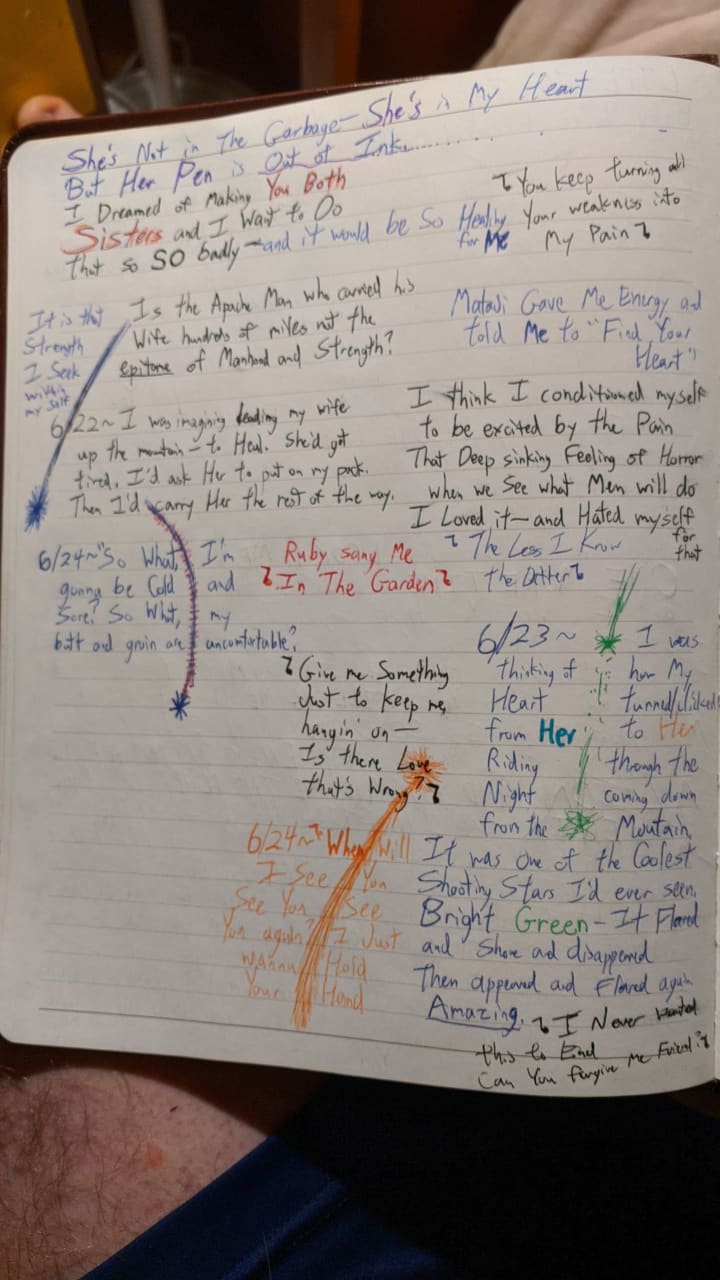 She's Not in The Garbage— She's in My Heart
But Her Pen is Out of Ink..........
I Dreamed of Making You Both
Sisters and I Want to Do
That so SO badly—and it would be So Healing
for Me
♪You keep turning all
Your weakness into
My Pain♪
It is that
Strength
I Seek
within
my Self
Is the Apache Man who carried his
Wife hundreds of miles not the
epitome of Manhood and Strength?
Mataji Gave Me Energy and
told Me to "Find Your
Heart"
6/22~ I was imagining leading my wife
up the mountain— to Heal. She'd get
tired. I'd ask Her to put on my pack.
Then I'd carry Her the rest of the way.
I think I conditioned myself
to be excited by the Pain
That Deep sinking Feeling of Horror
when we See what Men will do
I Loved it— and Hated myself
for
that
6/24~"So What, I'm
gonna be Cold and
Sore? So What, my
butt and groin are uncomfortable?
Ruby sang Me
♪In The Garden♪
♪ The Less I Know
the Better♪
♪Give me Something
Just to keep me,
hangin' on—
Is there Love
that's Wrong?♪
6/23~ I was
thinking of how My
Heart turned/clicked
from Her to Her
Riding through the
Night coming down
from the Moutain,
It was one of the Coolest
Shooting Stars I'd ever seen,
Bright Green—It Flared
and Shone and disappeared
Then appeared and Flared again
Amazing.
6/24~♪When Will
I See You
See You See
You again? I Just
wanna Hold
Your Hand
♪I Never wanted
this to End
Can You forgive Me Friend?♪